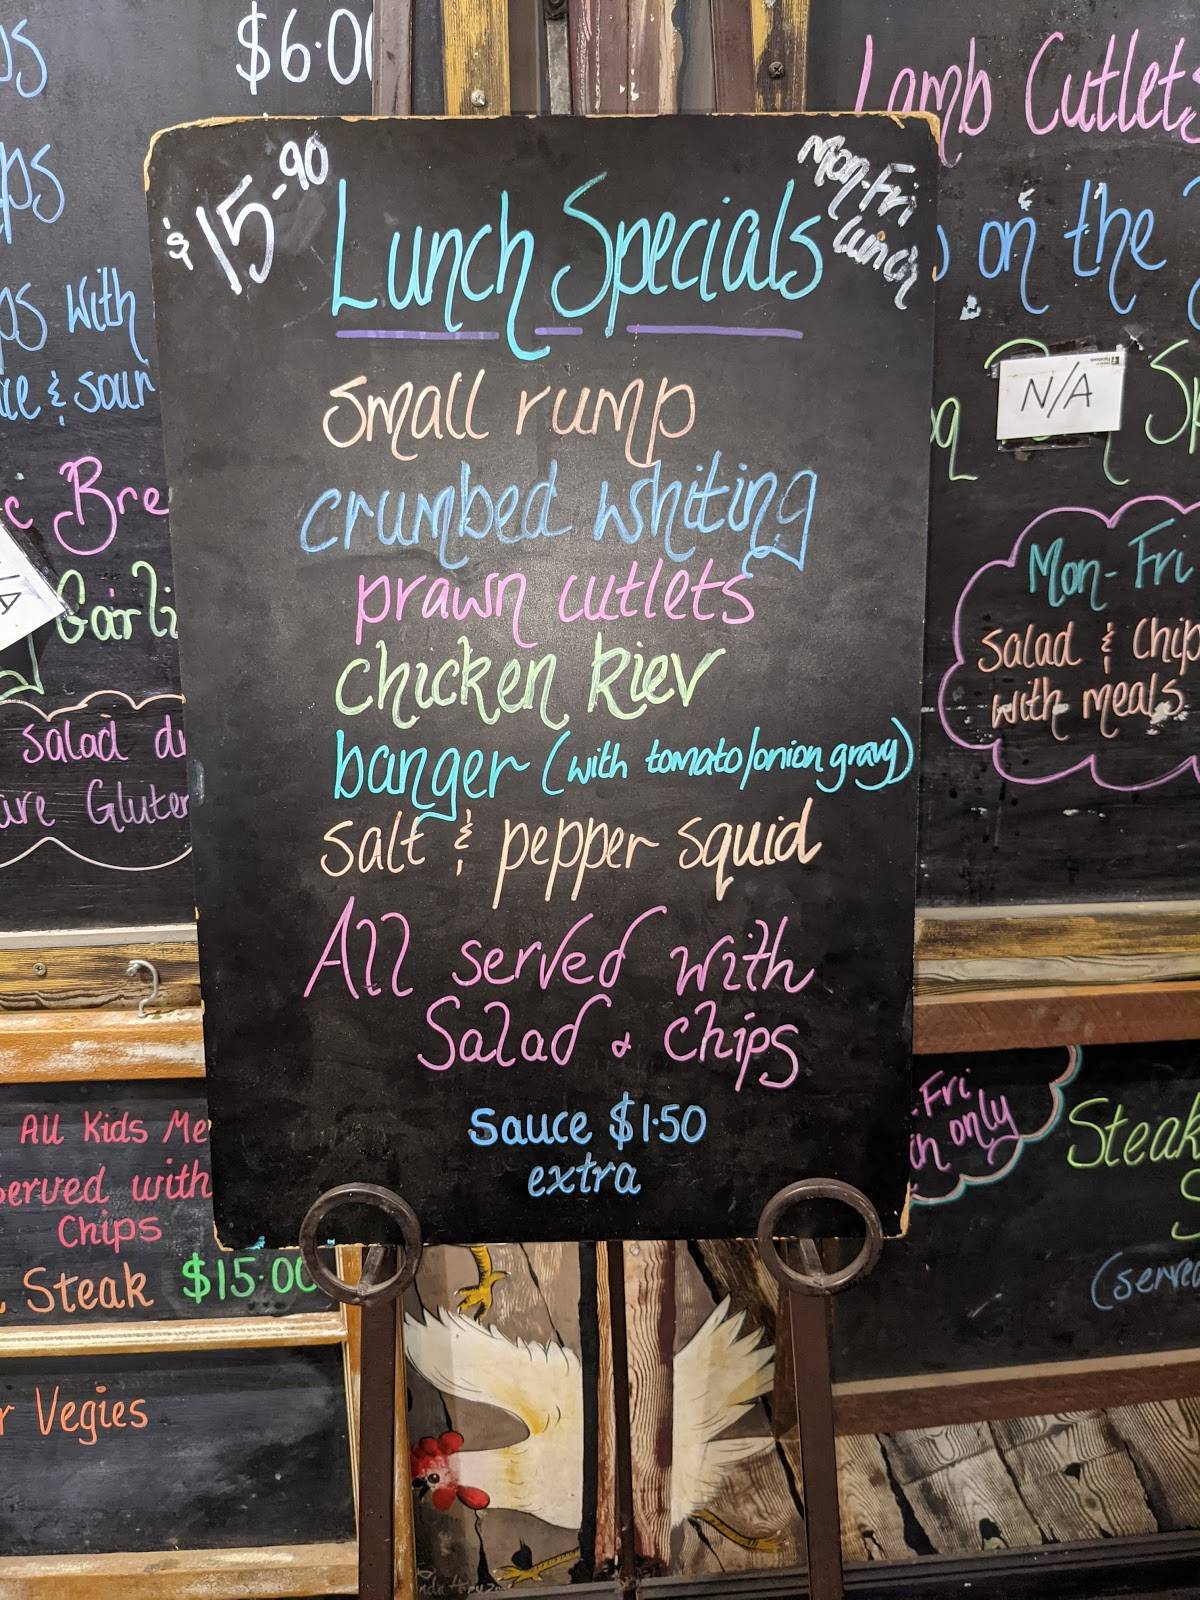 $6.00
$15-90
Mon-Fri
Lunch
Lunch Specials
small rump
crumbed whiting
prawn cutlets
chicken kiev
banger (with tomato/onion gravy)
salt & pepper squid
All served with
Salad & chips
Sauce $1.50
extra
with
& sour
Bre
Garli
salad
Gluten
All Kids Me
served with
Chips
Steak $15.00
Vegies
Lamb Cutlets
on the
N/A
Mon-Fri
salad & chip
with meals
-Fri
only
Steak
(served